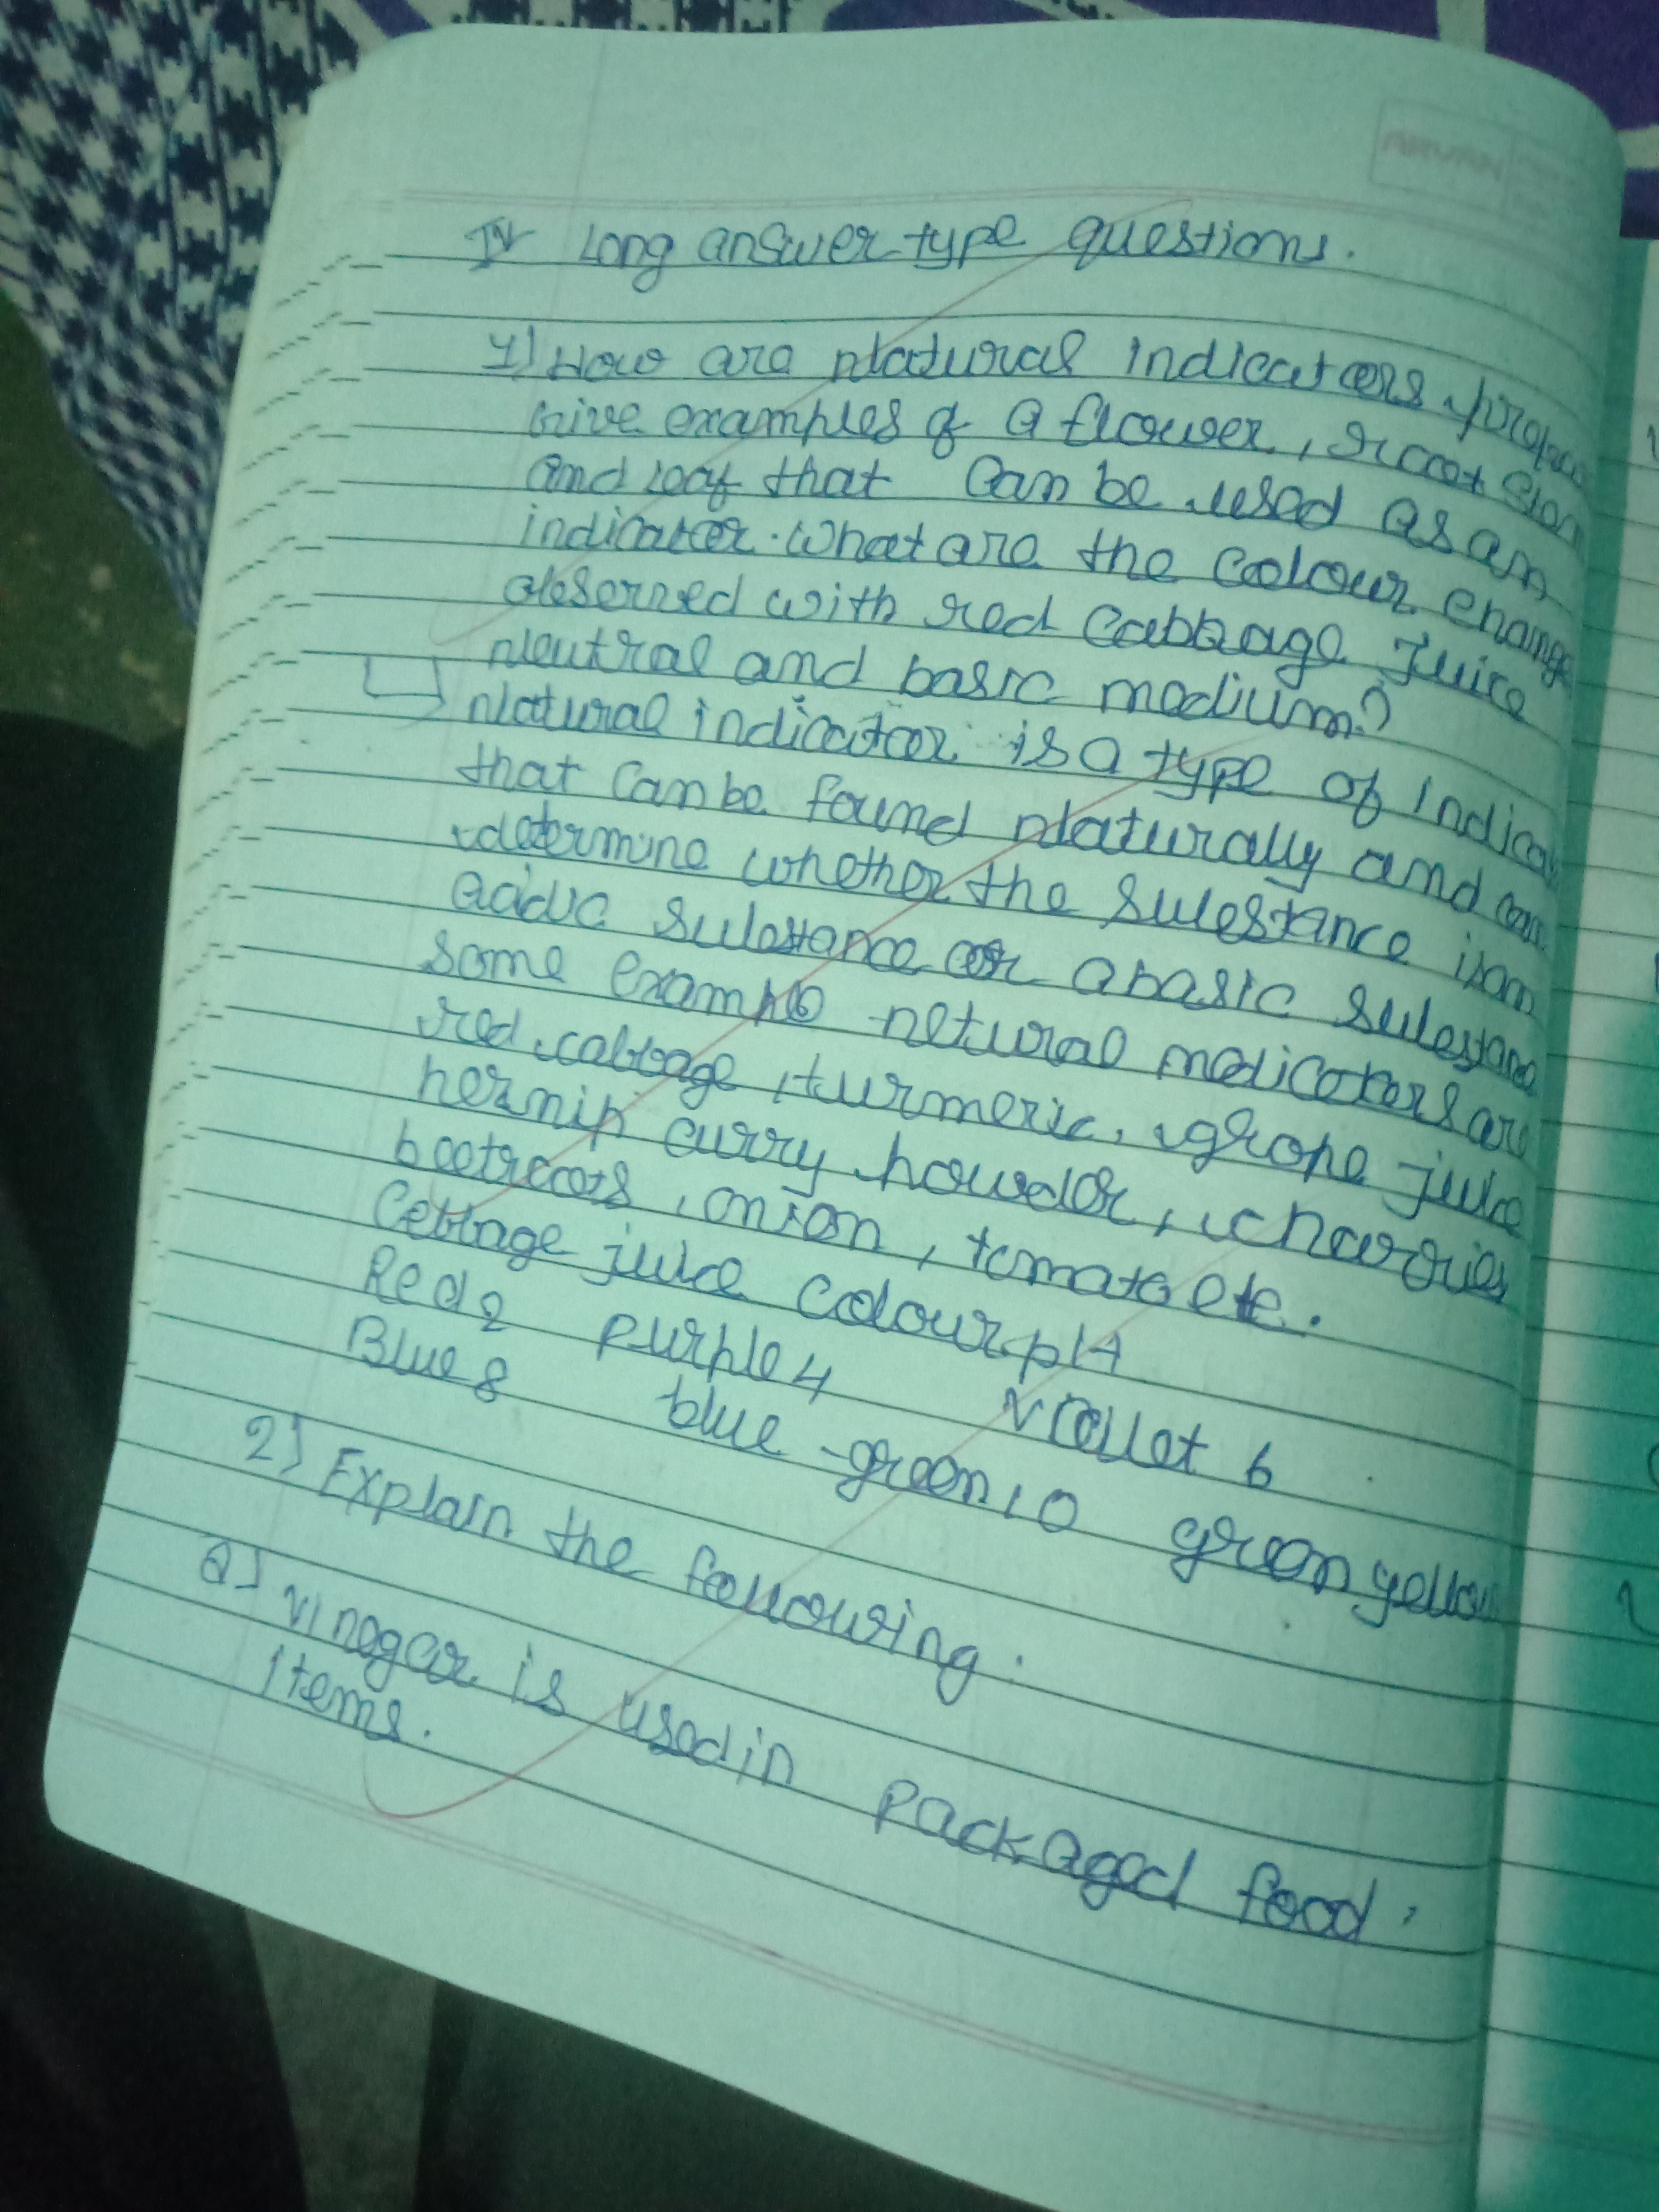 IV Long answer type questions.
1) How are Natural indicators
Give examples of a flower, root
and leaf that can be used as an
indicator. What are the colour change
observed with red cabbage Juice
Neutral and basic medium?
Natural indicator is a type of Indicat
that can be found Naturally and can
determine whether the substance is an
acidic substance or a basic substance
some example netural indicators are
red cabbage, turmeric, grape juice
curry powder, cherries
beetroots, onion, tomato etc.
Cebbage juice colour pH
Red 2 purple 4 violet 6
Blue 8 blue-green 10 green yellow
2) Explain the following.
a) vinegar is used in packaged food
items.